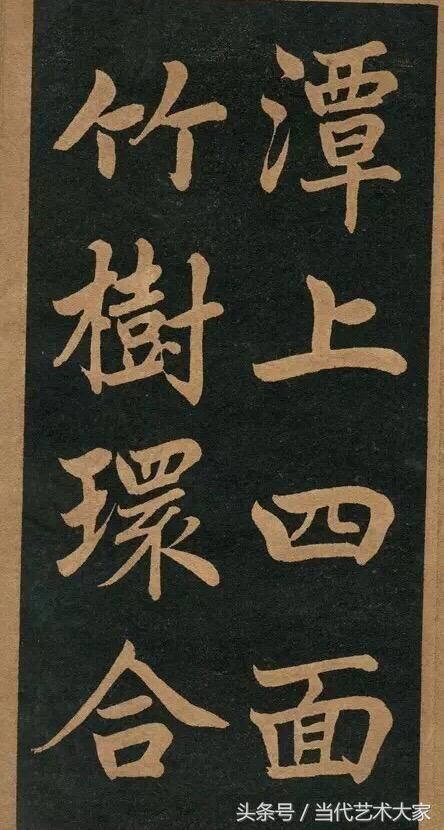 潭上四面
竹樹環合
头条号/当代艺术大家